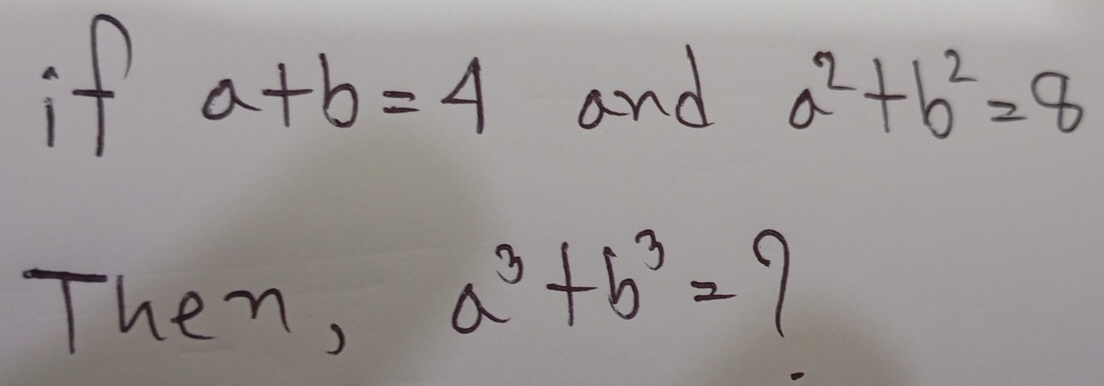 if a+b=4 and a²+b²=8
Then, a³+b³=?